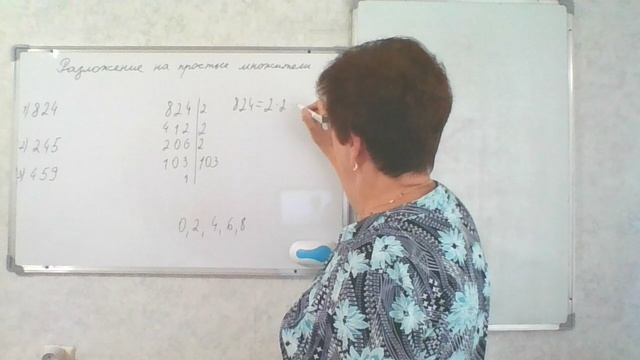 Разложение на простые множители
1) 824
2) 245
3) 459
824 | 2
412 | 2
206 | 2
103 | 103
1
824=2·2
0, 2, 4, 6, 8